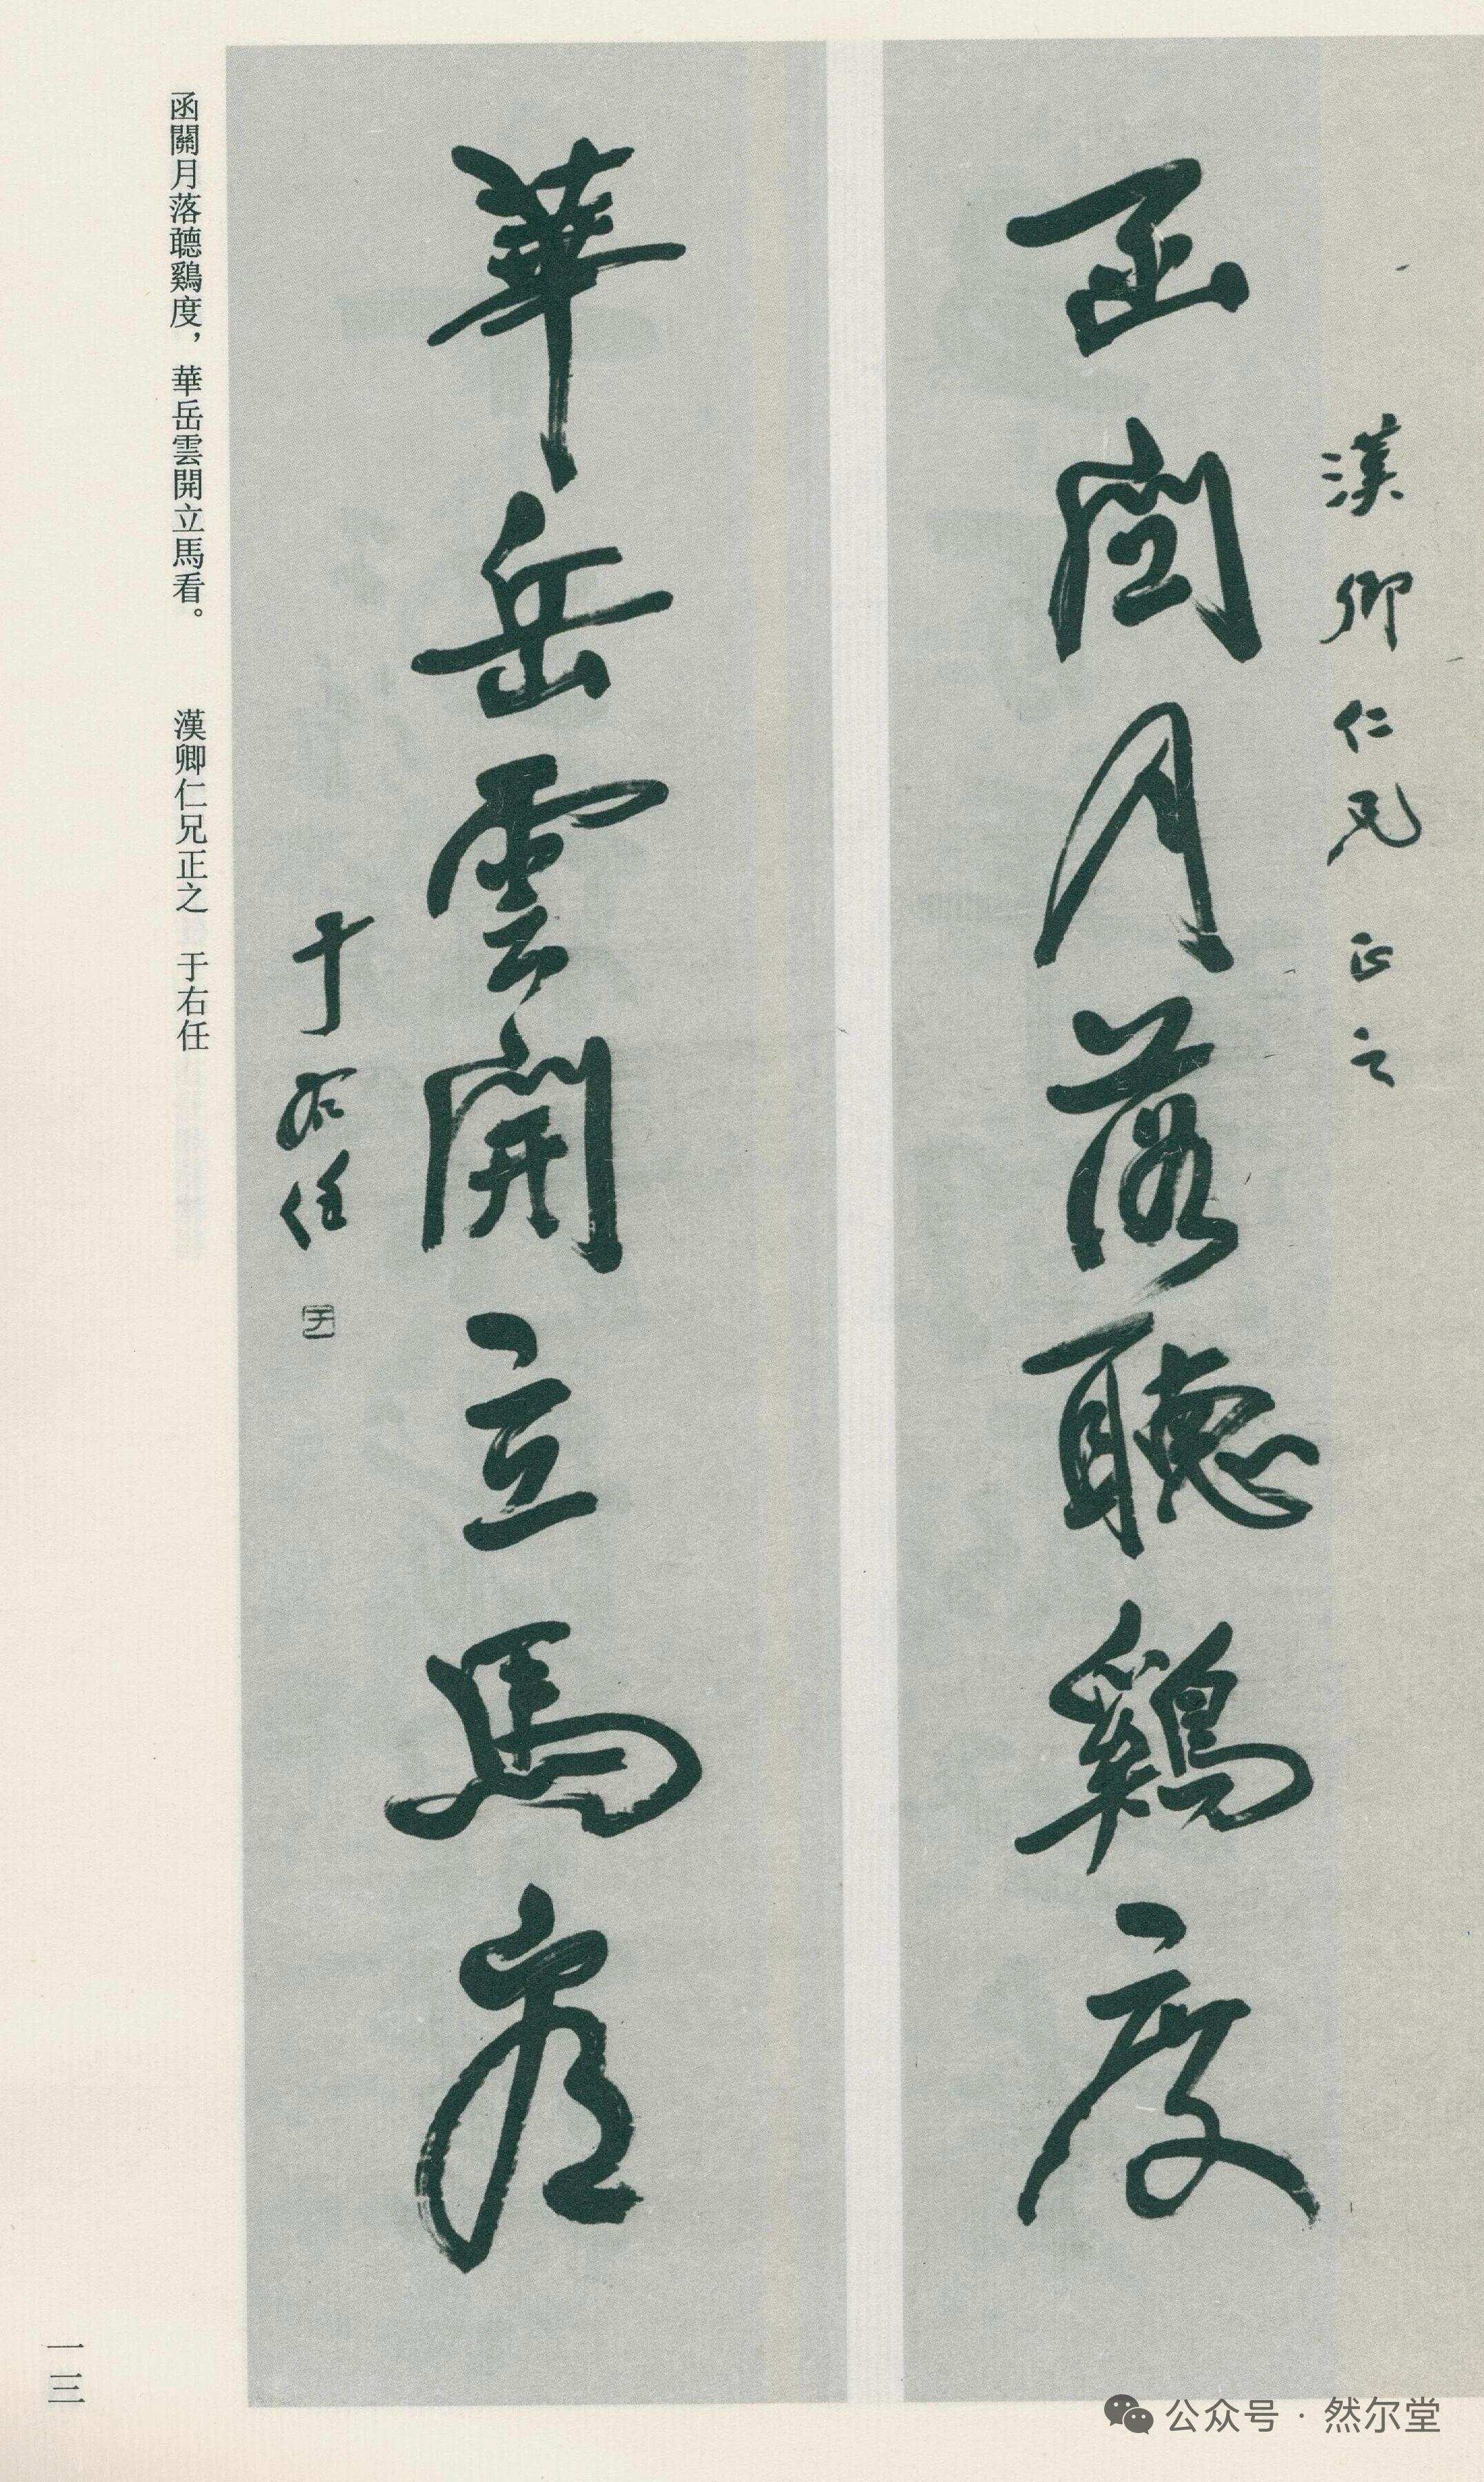 漢卿仁兄正之
函關月落聽鷄度
華岳雲開立馬看
于右任
函關月落聽鷄度，華岳雲開立馬看。　漢卿仁兄正之　于右任
一三
公众号 · 然尔堂